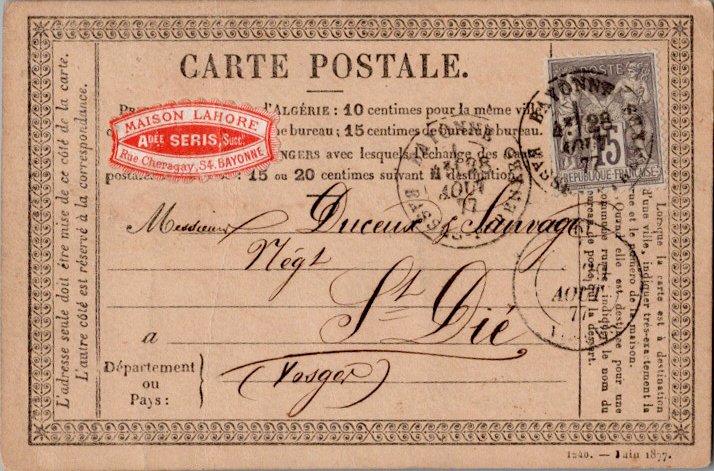 CARTE POSTALE.
MAISON LAHORE
Adée SERIS, Succr.
Rue Chegaray, 54, BAYONNE
d'ALGÉRIE : 10 centimes pour la même ville
de bureau ; 15 centimes de bureau à bureau.
NGERS avec lesquels l'échange des cartes
postales : 15 ou 20 centimes suivant la destination
POSTE
15
REPUBLIQUE FRANÇAISE
BAYONNE
28
AOUT
77
BAYONNE
28
AOUT
77
BASSES-PYRÉNÉES
AOUT
77
Messieurs Duceux & Sauvage
Négt
à St Dié
Département
ou
Pays :
(Vosges)
L'adresse seule doit être mise de ce côté de la carte.
L'autre côté est réservé à la correspondance.
Lorsque la carte est à destination
d'une ville, indiquer très-exactement la
rue et le numéro de la maison.
Quand elle est destinée pour une
commune rurale, indiquer le nom du
bureau de poste qui la dessert.
1240. — Juin 1877.